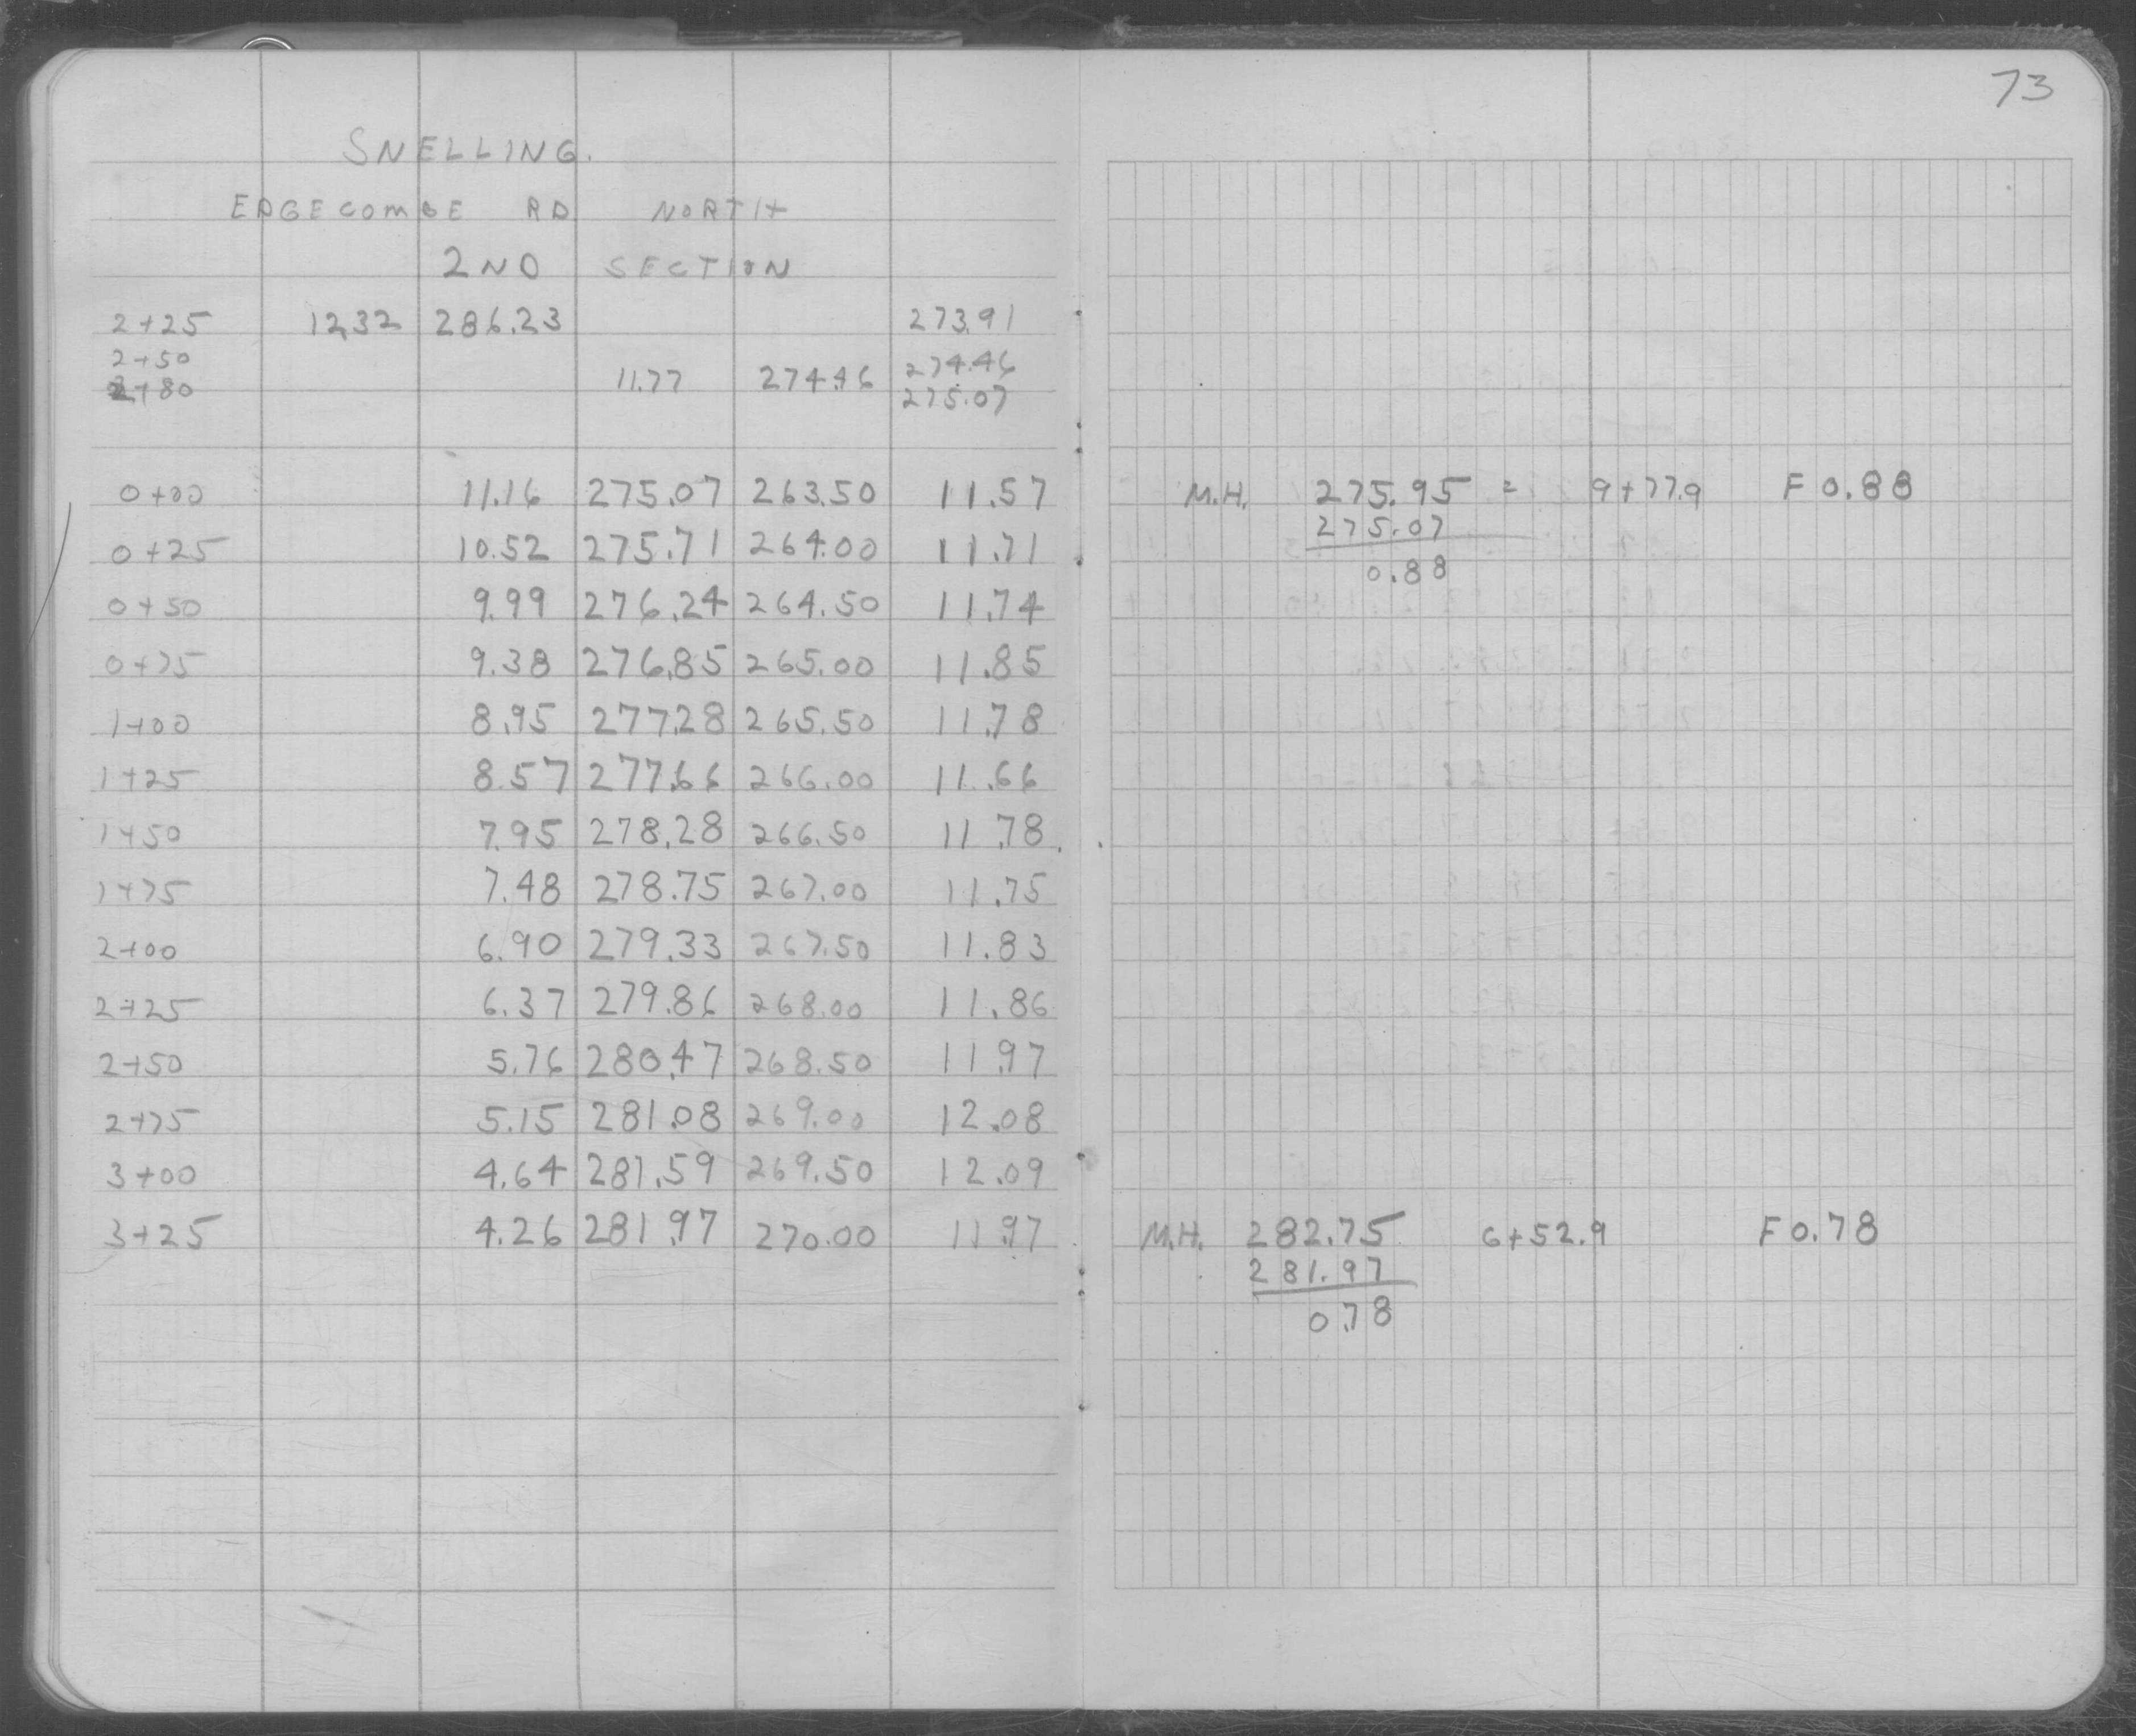 73
SNELLING.
EDGECOMBE RD NORTH
2ND SECTION
2+25 12.32 286.23 273.91
2+50 274.46
11.77 274.46
2+80 275.07
0+00 11.16 275.07 263.50 11.57 M.H. 275.95 = 9+77.9 F 0.88
275.07
0+25 10.52 275.71 264.00 11.71
0.88
0+50 9.99 276.24 264.50 11.74
0+75 9.38 276.85 265.00 11.85
1+00 8.95 277.28 265.50 11.78
1+25 8.57 277.66 266.00 11.66
1+50 7.95 278.28 266.50 11.78
1+75 7.48 278.75 267.00 11.75
2+00 6.90 279.33 267.50 11.83
2+25 6.37 279.86 268.00 11.86
2+50 5.76 280.47 268.50 11.97
2+75 5.15 281.08 269.00 12.08
3+00 4.64 281.59 269.50 12.09
3+25 4.26 281.97 270.00 11.97 M.H. 282.75 6+52.9 F 0.78
281.97
0.78